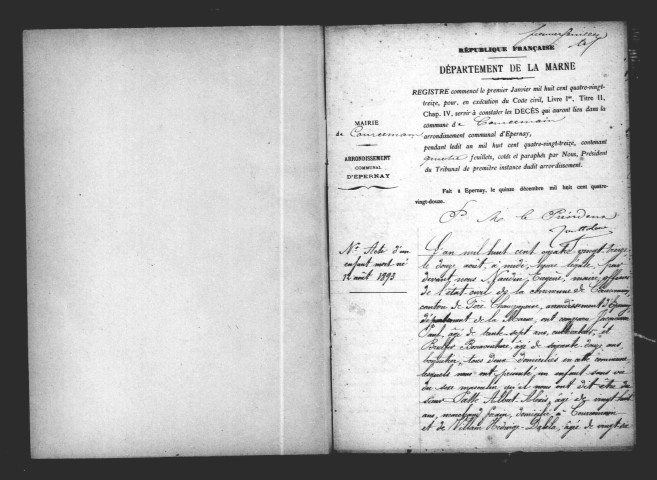 RÉPUBLIQUE FRANÇAISE
DÉPARTEMENT DE LA MARNE
REGISTRE commencé le premier Janvier mil huit cent quatre-vingt-
treize, pour, en exécution du Code civil, Livre Ier, Titre II,
Chap. IV, servir à constater les DÉCÈS qui auront lieu dans la
commune de Courcemain
arrondissement communal d'Epernay,
pendant ledit an mil huit cent quatre-vingt-treize, contenant
quatre feuillets, cotés et paraphés par Nous, Président
du Tribunal de première instance dudit arrondissement.
Fait à Epernay, le quinze décembre mil huit cent quatre-
vingt-douze.
P. M. le Président
MAIRIE
de Courcemain
ARRONDISSEMENT
COMMUNAL
D'ÉPERNAY
No Acte d'un
enfant mort-né
12 août 1893
L'an mil huit cent quatre vingt treize
le douze août, à midi, heure légale, par
devant nous Naudin Eugène, maire, officier
de l'état civil de la commune de Courcemain
canton de Fère Champenoise, arrondissement d'Epernay
département de la Marne, ont comparu
Paul, âgé de trente sept ans, cultivateur, et
Bonaventure, âgé de soixante onze ans,
tous deux domiciliés en cette commune
lesquels nous ont présenté un enfant sans vie
du sexe masculin, qu'ils nous ont dit être du
sieur Albert Alexis, âgé de vingt huit
ans, marchand forain, domicilié à Courcemain
et de Villain Hedwige, âgée de vingt six